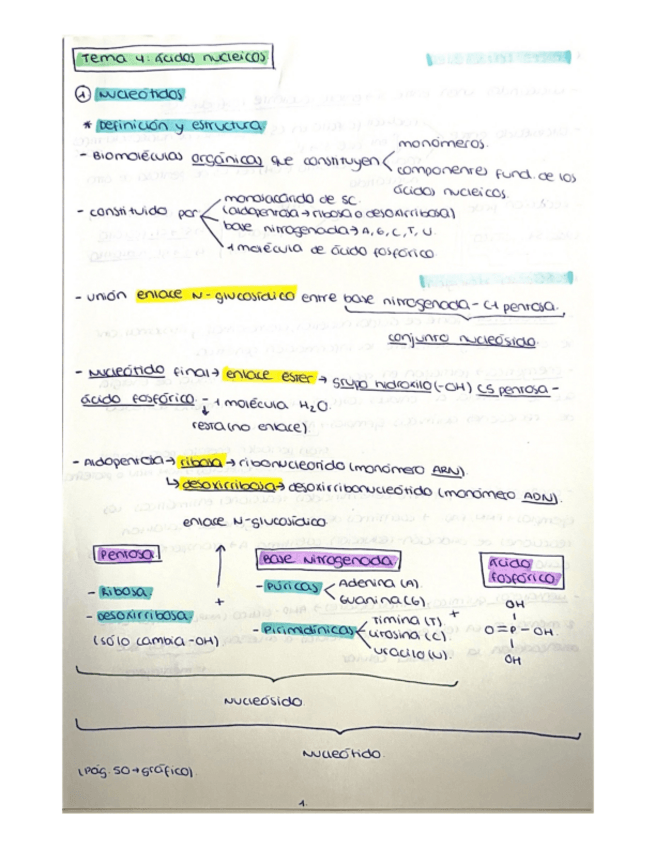 Tema 4: ácidos nucleicos
① Nucleótidos
* Definición y estructura
monómeros.
- Biomoléculas orgánicas que constituyen
componentes fund. de los
ácidos nucleicos.
monosacárido de 5C.
- constituido por
(aldopentosa → ribosa o desoxirribosa)
base nitrogenada → A, G, C, T, U.
1 molécula de ácido fosfórico
- unión enlace N-glucosídico entre base nitrogenada - C1 pentosa.
conjunto nucleósido.
- Nucleótido final → enlace éster → grupo hidroxilo (-OH) C5 pentosa -
ácido fosfórico - 1 molécula H₂O.
resta (no enlace).
- Aldopentosa → ribosa → ribonucleótido (monómero ARN).
↳ desoxirribosa → desoxirribonucleótido (monómero ADN).
enlace N-glucosídico
Pentosa
Base Nitrogenada
Ácido
fosfórico
- Ribosa
- Púricas
Adenina (A).
Guanina (G).
+
- Desoxirribosa
(sólo cambia -OH)
- Pirimidínicas
Timina (T).
Citosina (C).
uracilo (U).
+
OH
O=P-OH
OH
Nucleósido
Nucleótido.
(Pág. 50 → gráfico).
1.